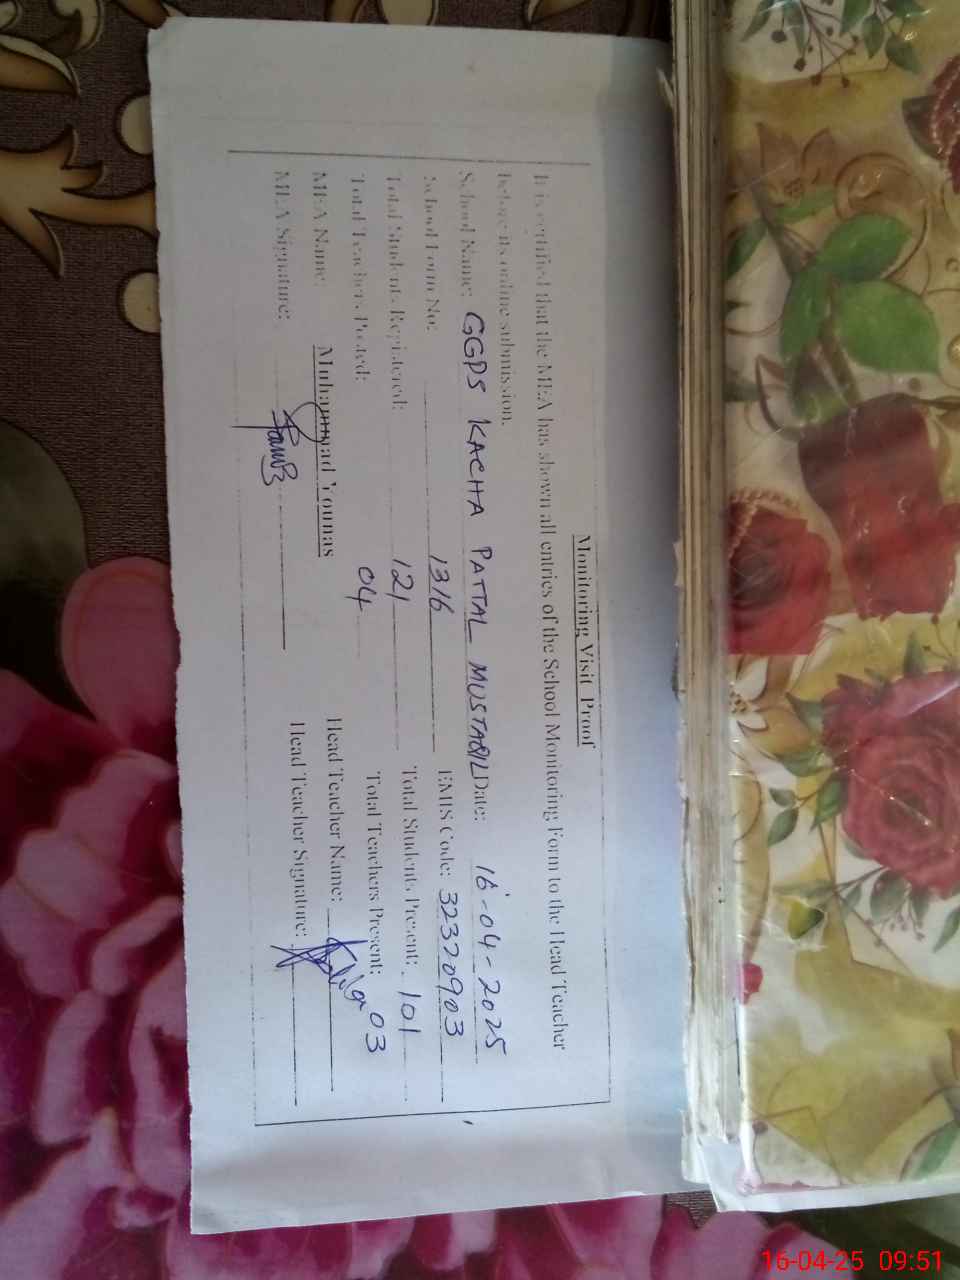 Monitoring Visit Proof
It is certified that the MEA has shown all entries of the School Monitoring Form to the Head Teacher
before its online submission.
School Name: GGPS KACHA PATTAL MUSTAQIL Date: 16-04-2025
School Form No: 1316 EMIS Code: 32320903
Total Students Registered: 121 Total Students Present: 101
Total Teachers Posted: 04 Total Teachers Present: 03
MEA Name: Muhammad Younas Head Teacher Name:
MEA Signature: Head Teacher Signature:
16-04-25 09:51